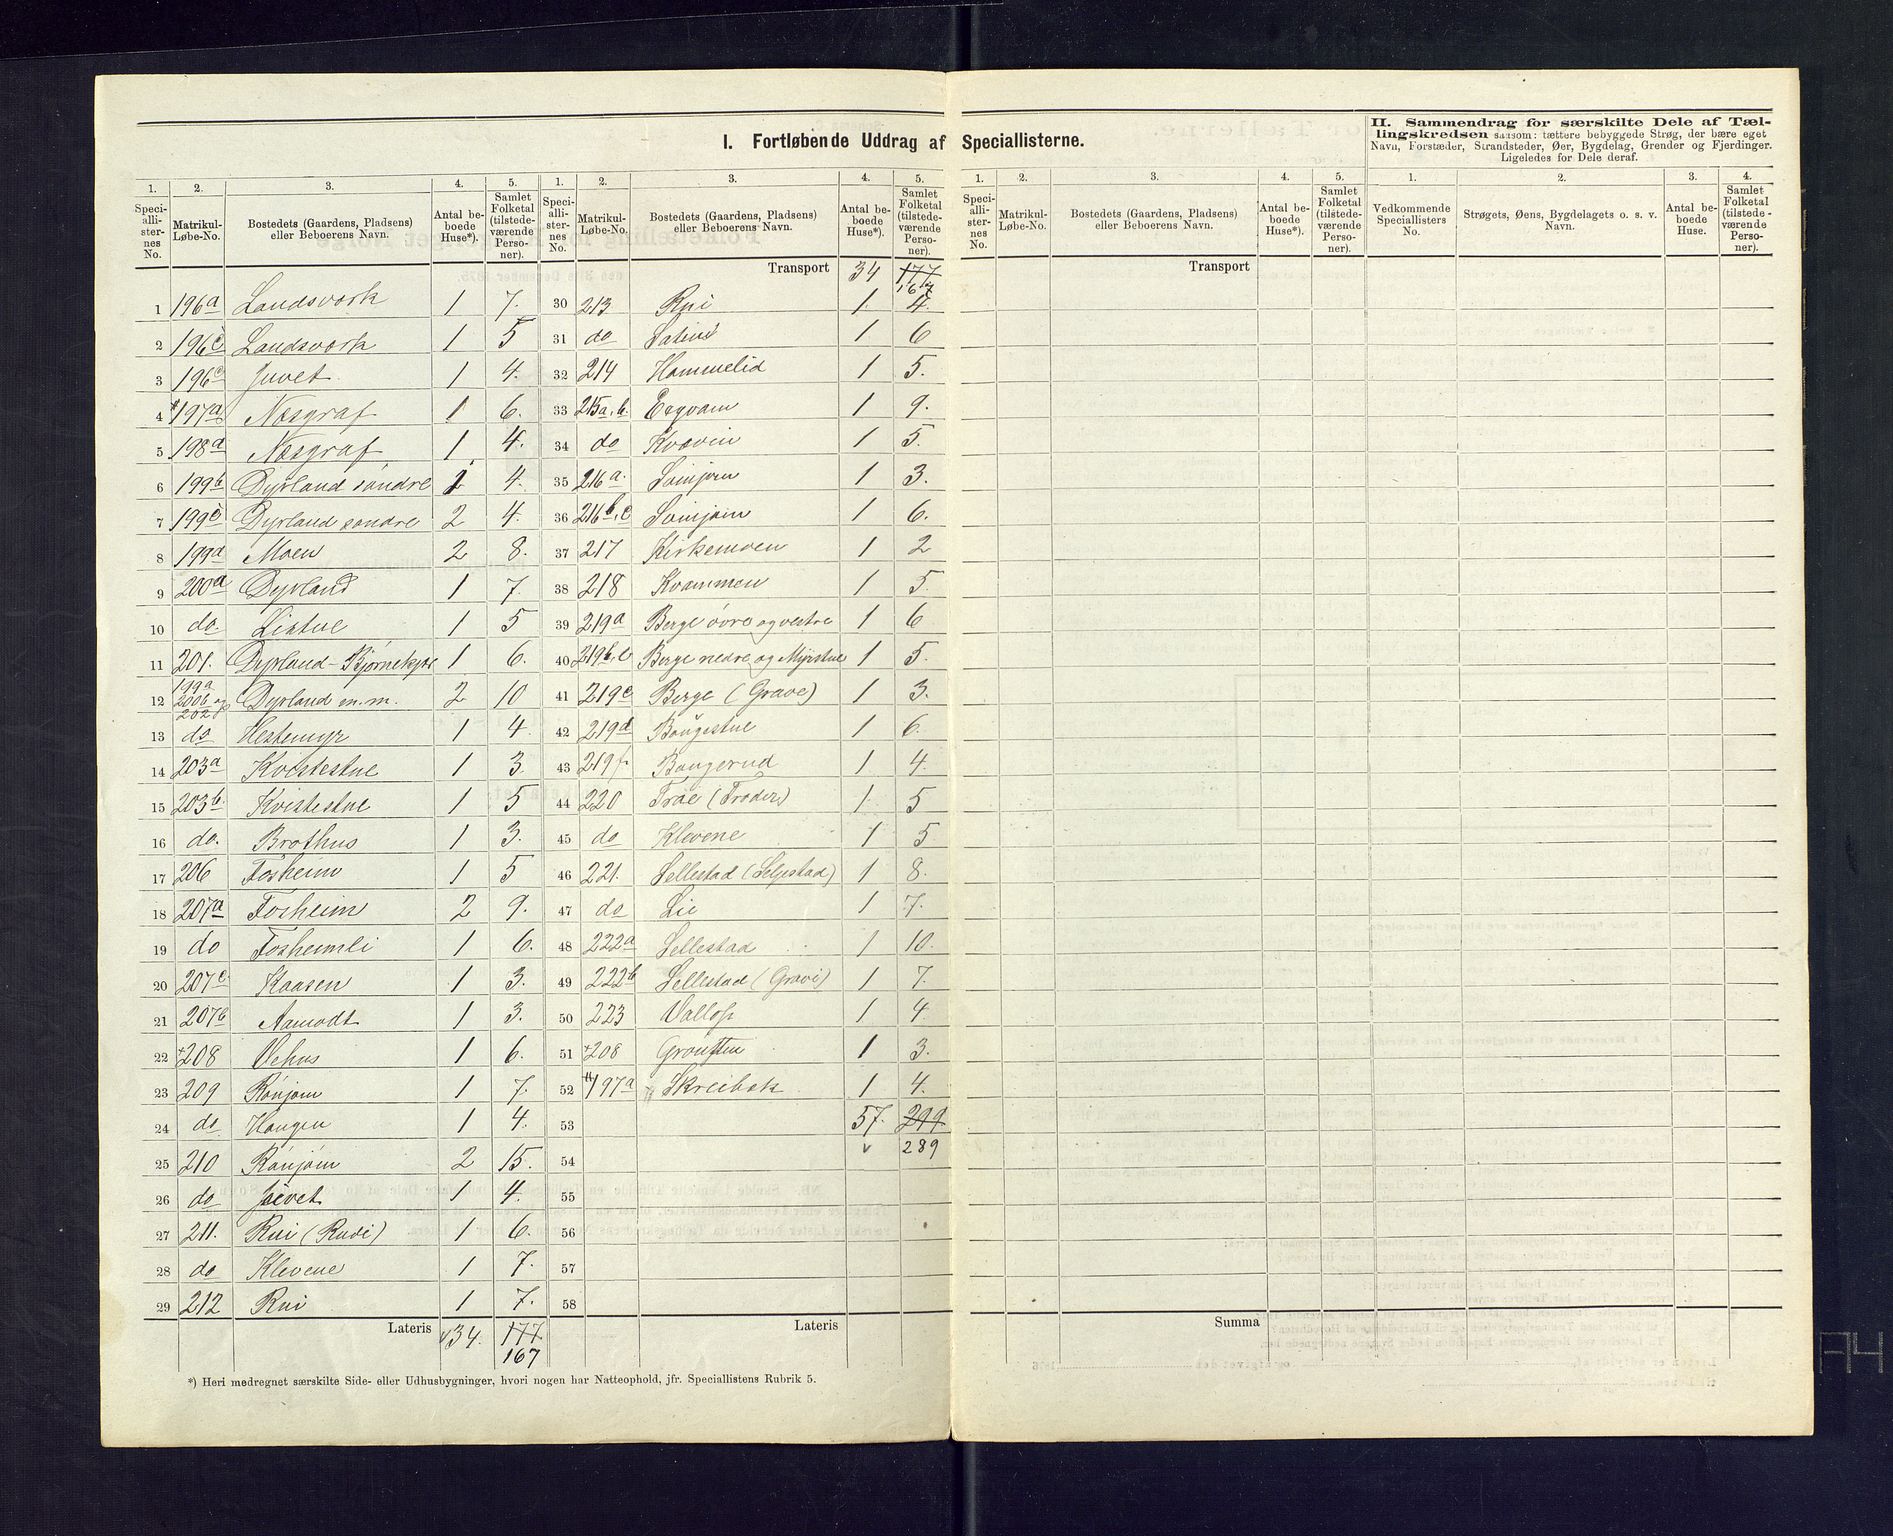 I. Fortløbende Uddrag af Speciallisterne.
II. Sammendrag for særskilte Dele af Tællingskredsen saasom: tættere bebyggede Strøg, der bære eget
Navn, Forstæder, Strandsteder, Øer, Bygdelag, Grender og Fjerdinger.
Ligeledes for Dele deraf.
1. 2. 3. 4. 5. 1. 2. 3. 4. 5. 1. 2. 3. 4. 5. 1. 2. 3. 4.
Speciallisternes No. Matrikul-Løbe-No. Bostedets (Gaardens, Pladsens) eller Beboerens Navn. Antal beboede Huse*). Samlet Folketal (tilstedeværende Personer).
Speciallisternes No. Matrikul-Løbe-No. Bostedets (Gaardens, Pladsens) eller Beboerens Navn. Antal beboede Huse*). Samlet Folketal (tilstedeværende Personer).
Speciallisternes No. Matrikul-Løbe-No. Bostedets (Gaardens, Pladsens) eller Beboerens Navn. Antal beboede Huse*). Samlet Folketal (tilstedeværende Personer).
Vedkommende Speciallisters No. Strøgets, Øens, Bygdelagets o. s. v. Navn. Antal beboede Huse. Samlet Folketal (tilstedeværende Personer).
1 196a Landsværk 1 7.
2 196b Landsværk 1 5
3 196c Juvet 1 4.
4 197a Næsgraf 1 6.
5 198a Næsgraf 1 4.
6 199b Dyrland søndre 1 4.
7 199c Dyrland søndre 2 4.
8 199a Moen 2 8.
9 200a Dyrland 1 7.
10 do. Listue 1 5
11 201. Dyrland-Bjørnekjær 1 6.
12 199a 200b og 202 Dyrland m.m. 2 10
13 do Hestemyr 1 4.
14 203a Kvistestue 1 3.
15 203b. Kvistestue 1 5
16 do. Brothus 1 3.
17 206 Fosheim 1 5
18 207a Fosheim 2 9.
19 do Fosheimli 1 6.
20 207c. Kaasen 1 3.
21 207b Aamodt 1 3.
22 +208 Vehus 1 6.
23 209 Rønjom 1 7.
24 do Haugen 1 4.
25 210 Rønjom 2 15.
26 do Juvet 1 4.
27 211. Rui (Rudi) 1 6.
28 do Klevene 1 7.
29 212 Rui 1 7.
Lateris 34. 177
167
Transport 34 177
167
30 213 Rui 1 4.
31 do 1 6
32 214 Hommelid 1 5.
33 215a,b. 1 9.
34 do Kvævin 1 5.
35 216a. 1 3.
36 216b,c 1 6.
37 217 Kirkemoen 1 2
38 218 Kvammen 1 5.
39 219a Berge øvre og vestre 1 6
40 219b,e Berge nedre og Myrstue 1 5.
41 219c Berge (Grave) 1 3.
42 219d Baugestue 1 6.
43 219f. Baugerud 1 4.
44 220 1 5
45 do Klevene 1 5
46 221. Sellestad (Seljestad) 1 8.
47 do Lie 1 7.
48 222a Sellestad 1 10.
49 222b Sellestad (Gravi) 1 7.
50 223 1 4.
51 +208 1 3.
52 197a Skreibek 1 4.
53 57. 299
54 289
55
56
57
58
Lateris
Transport
Summa
*) Heri medregnet særskilte Side- eller Udhusbygninger, hvori nogen har Natteophold, jfr. Speciallistens Rubrik 5.